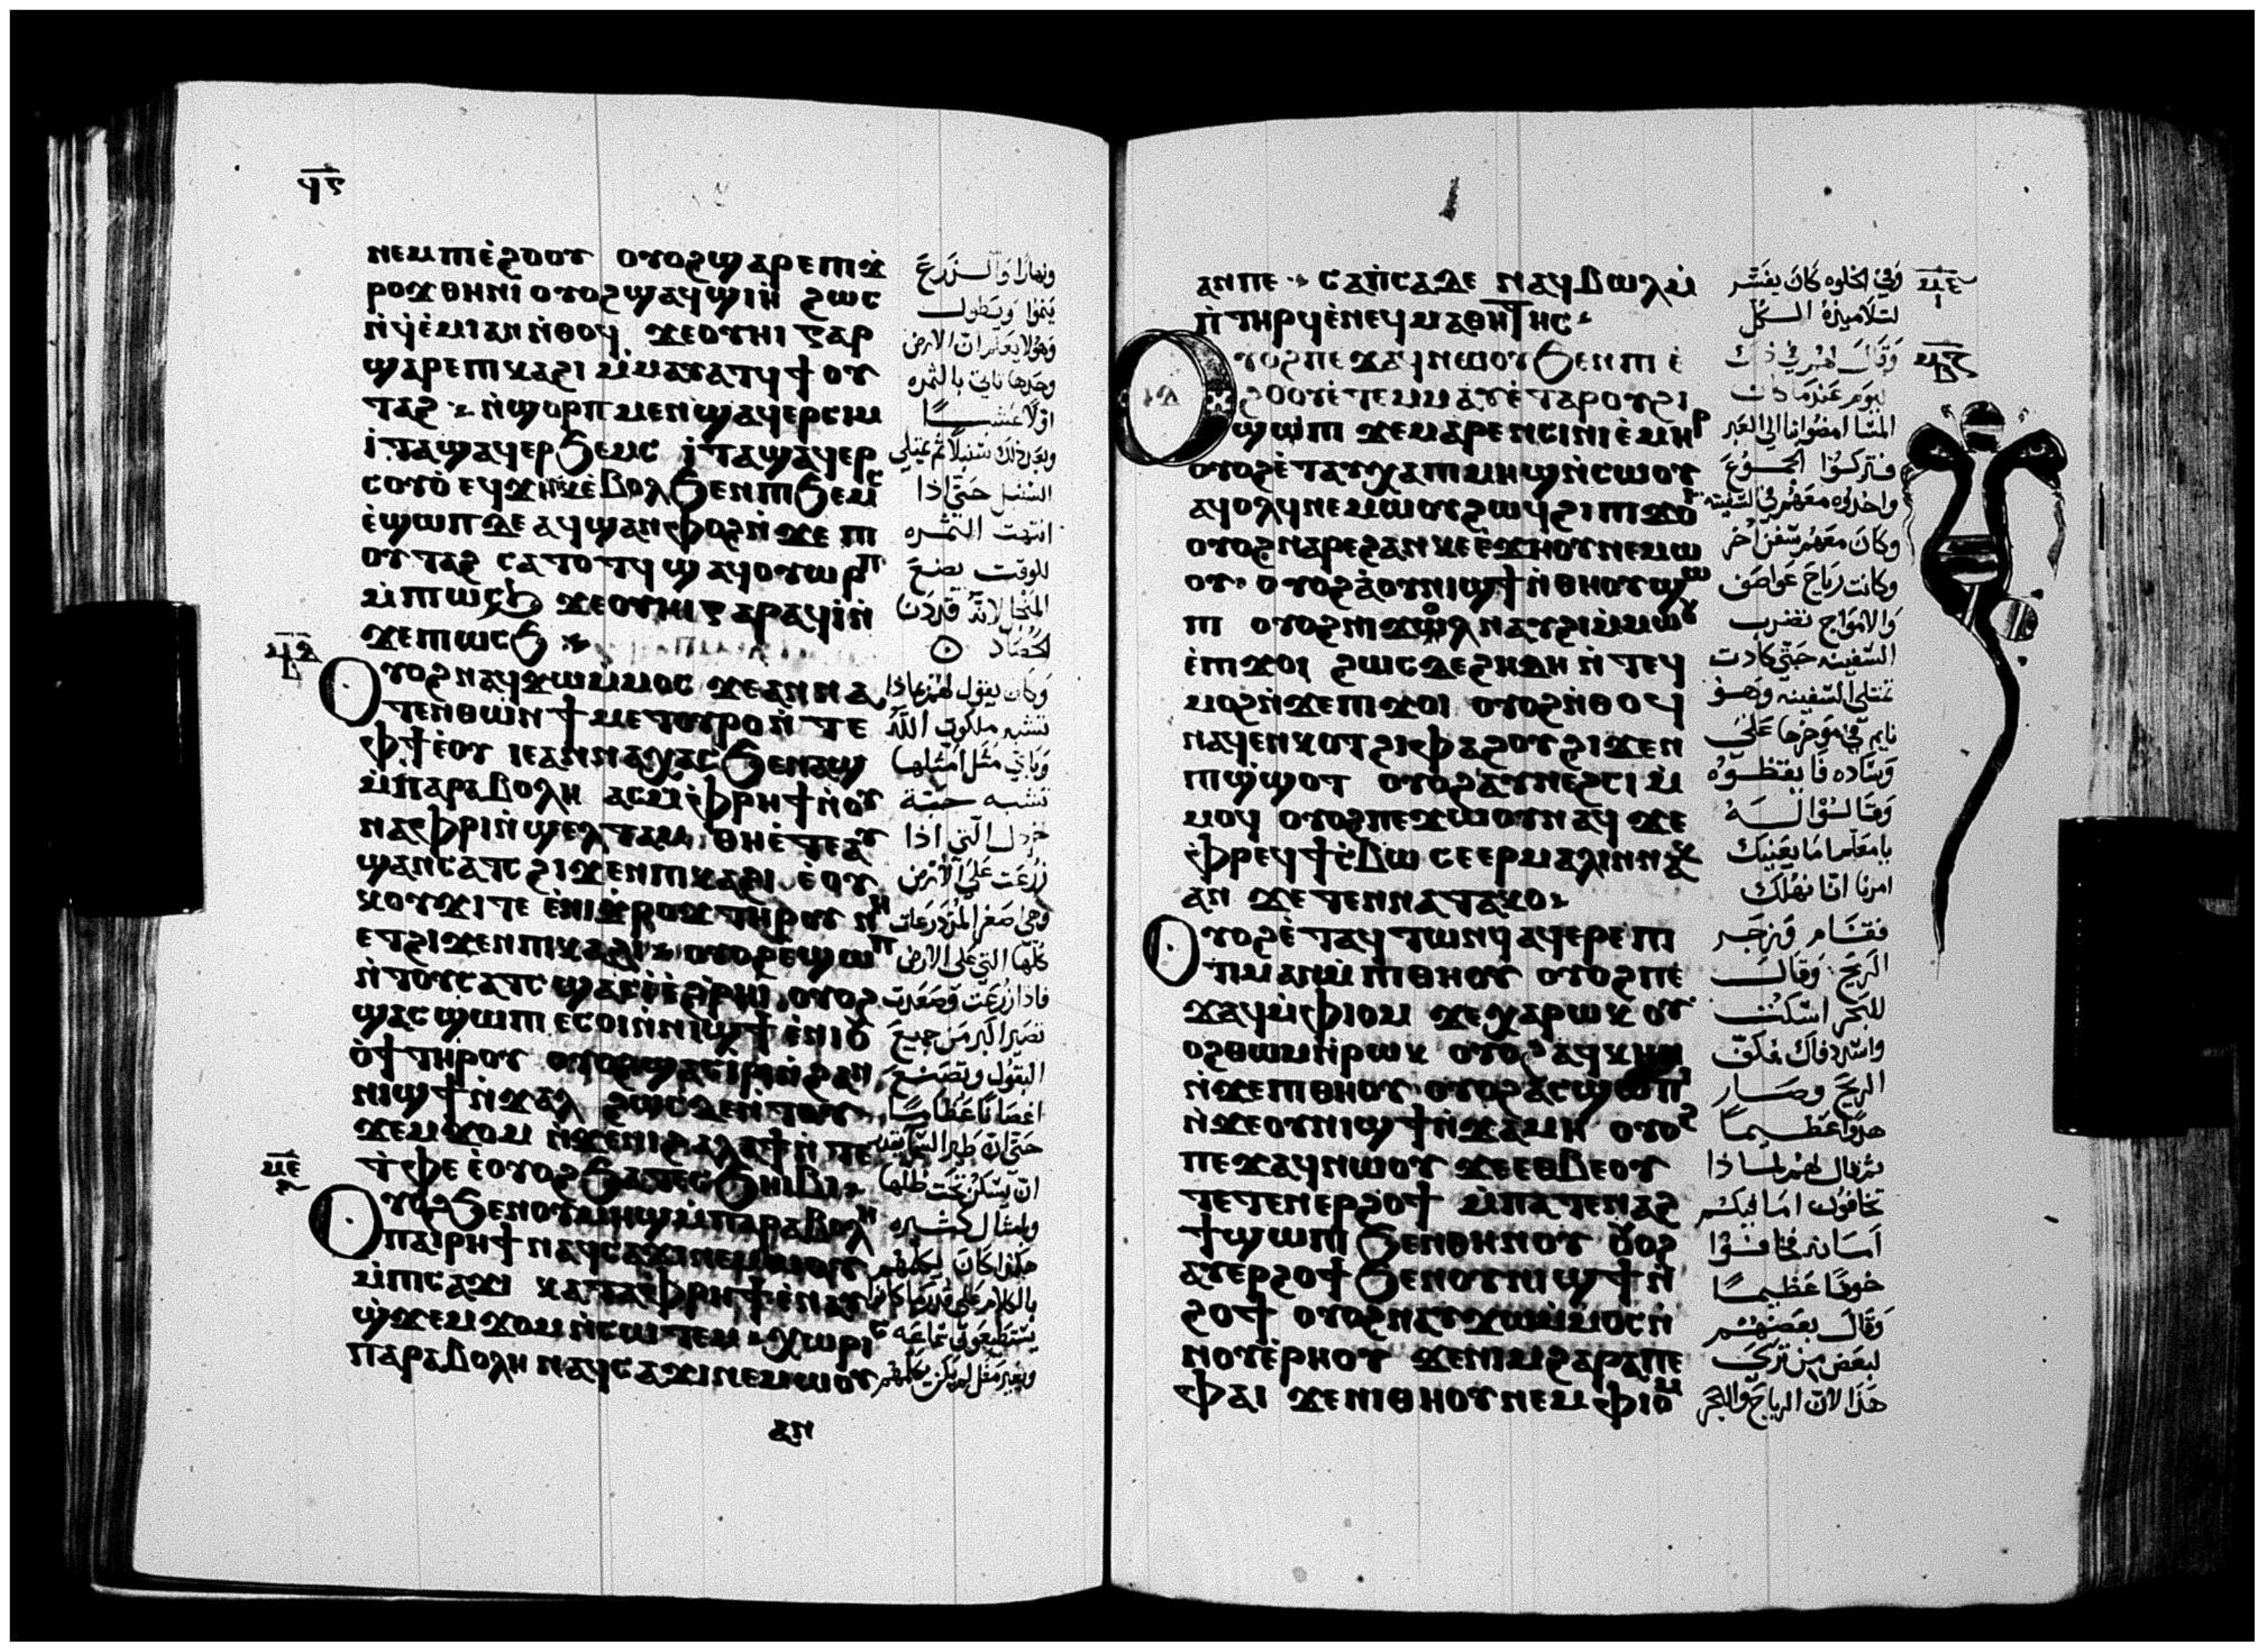 ϥⲋ
ⲛⲉⲙⲡⲓⲉ̀ϩⲟⲟⲩ ⲟⲩⲟϩϣⲁⲣⲉⲡⲓϫ̀
ⲣⲟϫ ⲑⲏⲛⲓ ⲟⲩⲟϩϣⲁϥϣⲓⲏ̀ ϩⲱⲥ
ⲛ̀ϥⲉ̀ⲙⲓⲁⲛⲛ̀ⲑⲟϥ ϫⲉⲟⲩⲏⲓ ⲅⲁⲣ
ϣⲁⲣⲉⲡⲓⲕⲁϩⲓ ⲙ̀ⲙⲁⲩⲁⲧϥ ϯ ⲟⲩ
ⲧⲁϩ ⲛ̀ϣⲟⲣⲡ ⲙⲉⲛϣⲁϥⲉⲣⲥⲓⲙ
ⲓ̀ⲧⲁϣⲁϥⲉⲣϧⲉⲙⲥ ⲓ̀ⲧⲁϣⲁϥⲉⲣ
ⲥⲟⲩⲟ̀ ⲉϥϫⲏⲕⲉ̀ⲃⲟⲗϧⲉⲛⲡⲓϧⲉⲙⲥ
ⲉ̀ϣⲱⲡⲇⲉ ⲁϥϣⲁⲛⲫⲟϩⲛ̀ϫⲉ ⲡⲓ
ⲟⲩⲧⲁϩ ⲥⲁⲧⲟⲧϥ ϣⲁϥⲟⲩⲱⲣⲡ
ⲙ̀ⲡⲓⲱⲥϧ ϫⲉⲟⲩⲏⲓⲅⲁⲣⲁϥⲓ̀ⲛ̀
ϫⲉⲡⲓⲱⲥϧ
ⲙⲇ
ⲟⲩⲟϩⲛⲁϥϫⲱⲙ̀ⲙⲟⲥ ϫⲉⲁⲛⲛⲁ
ⲧⲉⲛⲑⲱⲛ ϯⲙⲉⲧⲟⲩⲣⲟⲛ̀ ⲧⲉ
ⲫϯⲉ̀ⲟⲩ ⲓⲉⲁⲛⲛⲁⲭⲁⲥϧⲉⲛⲁϣ
ⲙ̀ⲡⲁⲣⲁⲃⲟⲗⲏ ⲁⲥⲙ̀ⲫⲣⲏϯⲛ̀ⲟⲩ
ⲛⲁⲫⲣⲓⲛ̀ϣⲉⲗⲧⲁⲙ ⲑⲏⲉ̀ⲧⲉⲁⲩ
ϣⲁⲛⲥⲁⲧⲥ ϩⲓϫⲉⲛⲡⲓⲕⲁϩⲓ ⲉ̀ⲟⲩ
ⲕⲟⲩϫⲓⲧⲉ ⲉ̀ⲛⲓϫ̀ⲣⲟϫ ⲧⲏⲣⲟⲩ ⲛⲏ
ⲉⲧϩⲓϫⲉⲛⲡⲓⲕⲁϩⲓ ⲟⲩⲟϩⲉϣⲱⲡ
ⲛ̀ⲧⲟⲩⲥⲁⲧⲥ ϣⲁⲥⲓ̀ⲉ̀ϩⲣⲏⲓ ⲟⲩⲟϩ
ϣⲁⲥϣⲱⲡⲓ ⲉⲥⲟⲓⲛ̀ⲛⲓϣϯ ⲉ̀ⲛⲓⲟ
ⲟ̀ϯ ⲧⲏⲣⲟⲩ ⲟⲩⲟϩϣⲁⲥⲓ̀ⲣⲓⲛ̀ϩⲁⲛ
ⲛⲓϣϯⲛ̀ϫⲁⲗ ϩⲱⲥⲇⲉⲛ̀ⲧⲟⲩ
ϫⲉⲙϫⲟⲙ ⲛ̀ϫⲉⲛⲓϩⲁⲗⲁϯⲛ̀ⲧⲉ
ⲧ̀ⲫⲉ ⲉ̀ⲟⲩⲟϩϧⲁⲧⲉⲥϧⲏⲓⲃⲓ
ⲙⲉ
ⲟⲩⲟϩϧⲉⲛⲟⲩⲙⲏϣⲙ̀ⲡⲁⲣⲁⲃⲟⲗⲏ
ⲙⲡⲁⲓⲣⲏϯ ⲛⲁϥⲥⲁϫⲓⲛⲉⲙⲱⲟⲩ
ⲙ̀ⲡⲓⲥⲁϫⲓ ⲕⲁⲧⲁⲫⲣⲏϯⲉ̀ⲛⲁⲩ
ϣ̀ϫⲉⲙϫⲟⲙⲛ̀ⲥⲱⲧⲉⲙ ⲭⲱⲣⲓⲥ
ⲡⲁⲣⲁⲃⲟⲗⲏ ⲛⲁϥⲥⲁϫⲓⲛⲉⲙⲱⲟⲩ
ⲁⲛ
ونهارًا والزرع
ينموا ويطول
وهو لا يعلم ان الارض
وحدها تاتي بالثمره
اولا عشبًا
وبعد ذلك سنبلا ثم يمتلي
السنبل حتى اذا
انتهت الثمره
للوقت يضع
المنجل لانه قد دنا
الحصاد
وكان يقول لهم بماذا
نشبه ملكوت الله
وباي مثل امثلها
تشبه حبة
خردل التي اذا
زرعت على الارض
وهي اصغر المزدرعات
كلها التي على الارض
فاذا زرعت وصعدت
تصير اكبر من جميع
البقول وتصنع
اغصانا عظامًا
حتى ان طير السما يقدر
ان يسكن تحت ظلها
وبامثال كثيره
هكذا كان يكلمهم
بالكلام على قدر ما كانوا
يستطيعون سماعه
وبغير مثل لم يكن يكلمهم
ⲁⲛⲡⲉ ⲥⲁⲡ̀ⲥⲁⲇⲉ ⲛⲁϥⲃⲱⲗⲙ̀
ⲡ̀ⲧⲏⲣϥⲉ̀ⲛⲉϥⲙⲁⲑⲏⲧⲏⲥ
ⲟⲩⲟϩⲡⲉϫⲁϥⲛⲱⲟⲩϧⲉⲛⲡⲓⲉ̀
ϩⲟⲟⲩⲉ̀ⲧⲉⲙⲙⲁⲩⲉ̀ⲧⲁⲣⲟⲩϩⲓ
ϣⲱⲡⲓ ϫⲉⲙⲁⲣⲉⲛⲥⲓⲛⲓⲉ̀ⲙⲏⲣ
ⲟⲩⲟϩⲉ̀ⲧⲁⲩⲭⲁⲡⲓⲙⲏϣⲛ̀ⲥⲱⲟⲩ
ⲁⲩⲟⲗϥⲛⲉⲙⲱⲟⲩϩⲱϥϩⲓⲡⲓϫⲟⲓ
ⲟⲩⲟϩⲛⲁⲣⲉϩⲁⲛⲕⲉⲉ̀ϫⲏⲟⲩⲛⲉⲙⲱ
ⲟⲩ ⲟⲩⲟϩⲁ̀ⲟⲩⲛⲓϣϯⲛ̀ⲑⲏⲟⲩϣⲱ
ⲡⲓ ⲟⲩⲟϩⲛⲓϫⲱⲗ ⲛⲁⲩϩⲓⲙ̀ⲙⲱⲟⲩ
ⲉ̀ⲡⲓϫⲟⲓ ϩⲱⲥⲇⲉϩⲏⲇⲏ ⲛ̀ⲧⲉϥ
ⲙⲟϩⲛ̀ϫⲉⲡⲓϫⲟⲓ ⲟⲩⲟϩⲛ̀ⲑⲟϥ
ⲛⲁϥⲉⲛⲕⲟⲧϩⲓⲫⲁϩⲟⲩϩⲓϫⲉⲛ
ⲡⲓϣ̀ϣⲟⲧ ⲟⲩⲟϩⲁⲩⲛⲉϩⲥⲓ ⲙ̀
ⲙⲟϥ ⲟⲩⲟϩⲡⲉϫⲱⲟⲩⲛⲁϥ ϫⲉ
ⲫ̀ⲣⲉϥϯⲥ̀ⲃⲱ ⲥⲉⲉⲣⲙⲁⲗⲓⲛⲛⲁⲕ
ⲁⲛ ϫⲉ ⲧⲉⲛⲛⲁⲧⲁⲕⲟ
ⲟⲩⲟϩⲉ̀ⲧⲁϥⲧⲱⲛϥ ⲁϥⲉⲣⲉⲡⲓ
ⲧⲓⲙⲁⲛⲙ̀ⲡⲓⲑⲏⲟⲩ ⲟⲩⲟϩⲡⲉ
ϫⲁϥⲙ̀ⲫⲓⲟⲙ ϫⲉⲭⲁⲣⲱⲕ ⲟⲩ
ⲟϩⲑⲱⲙⲛ̀ⲣⲱⲕ ⲟⲩⲟϩⲁϥⲕⲏⲛ
ⲛ̀ϫⲉⲡⲓⲑⲏⲟⲩ ⲟⲩⲟϩⲁⲥϣⲱⲡⲓ
ⲛ̀ϫⲉⲟⲩⲛⲓϣϯⲛ̀ϫⲁⲙⲏ ⲟⲩⲟϩ
ⲡⲉϫⲁϥⲛⲱⲟⲩ ϫⲉⲉⲑⲃⲉⲟⲩ
ⲧⲉⲧⲉⲛⲉⲣϩⲟϯ ⲙ̀ⲡⲁⲧⲉⲛⲁϩ
ϯϣⲱⲡⲓ ϧⲉⲛⲑⲏⲛⲟⲩ ⲟⲩⲟϩ
ⲁⲩⲉⲣϩⲟϯϧⲉⲛⲟⲩⲛⲓϣϯⲛ̀
ϩⲟϯ ⲟⲩⲟϩⲛⲁⲩϫⲱⲙ̀ⲙⲟⲥⲛ̀
ⲛⲟⲩⲉ̀ⲣⲏⲟⲩ ϫⲉⲛⲓⲙϩⲁⲣⲁⲡⲉ
ⲫⲁⲓ ϫⲉⲛⲓⲑⲏⲟⲩⲛⲉⲙⲫⲓⲟⲙ
وفي الخلوه كان يفسر
لتلاميذه الكل
وقال لهم في ذلك
اليوم عندما كان
المسا امضوا بنا الى العبر
فتركوا الجموع
واخذوه معهم في السفينه
وكان معهم سفن اخر
وكانت رياح عواصف
والامواج تضرب
السفينه حتى كادت
تمتلي السفينه وهو
نايم في موخرها على
وساده فايقظوه
وقالوا له
يا معلم اما يعنيك
امرنا اننا نهلك
فقام وزجر
الريح وقال
للبحر اسكت
واسدد فاك فكف
الريح وصار
هدوا عظيمًا
ثم قال لهم لماذا
تخافون اما فيكم
امانه فخافوا
خوفا عظيمًا
وقال بعضهم
لبعض من ترى
هذا لان الرياح والبحر
ⲙⲉ
ⲓ
ⲙⲋ
ⲃ